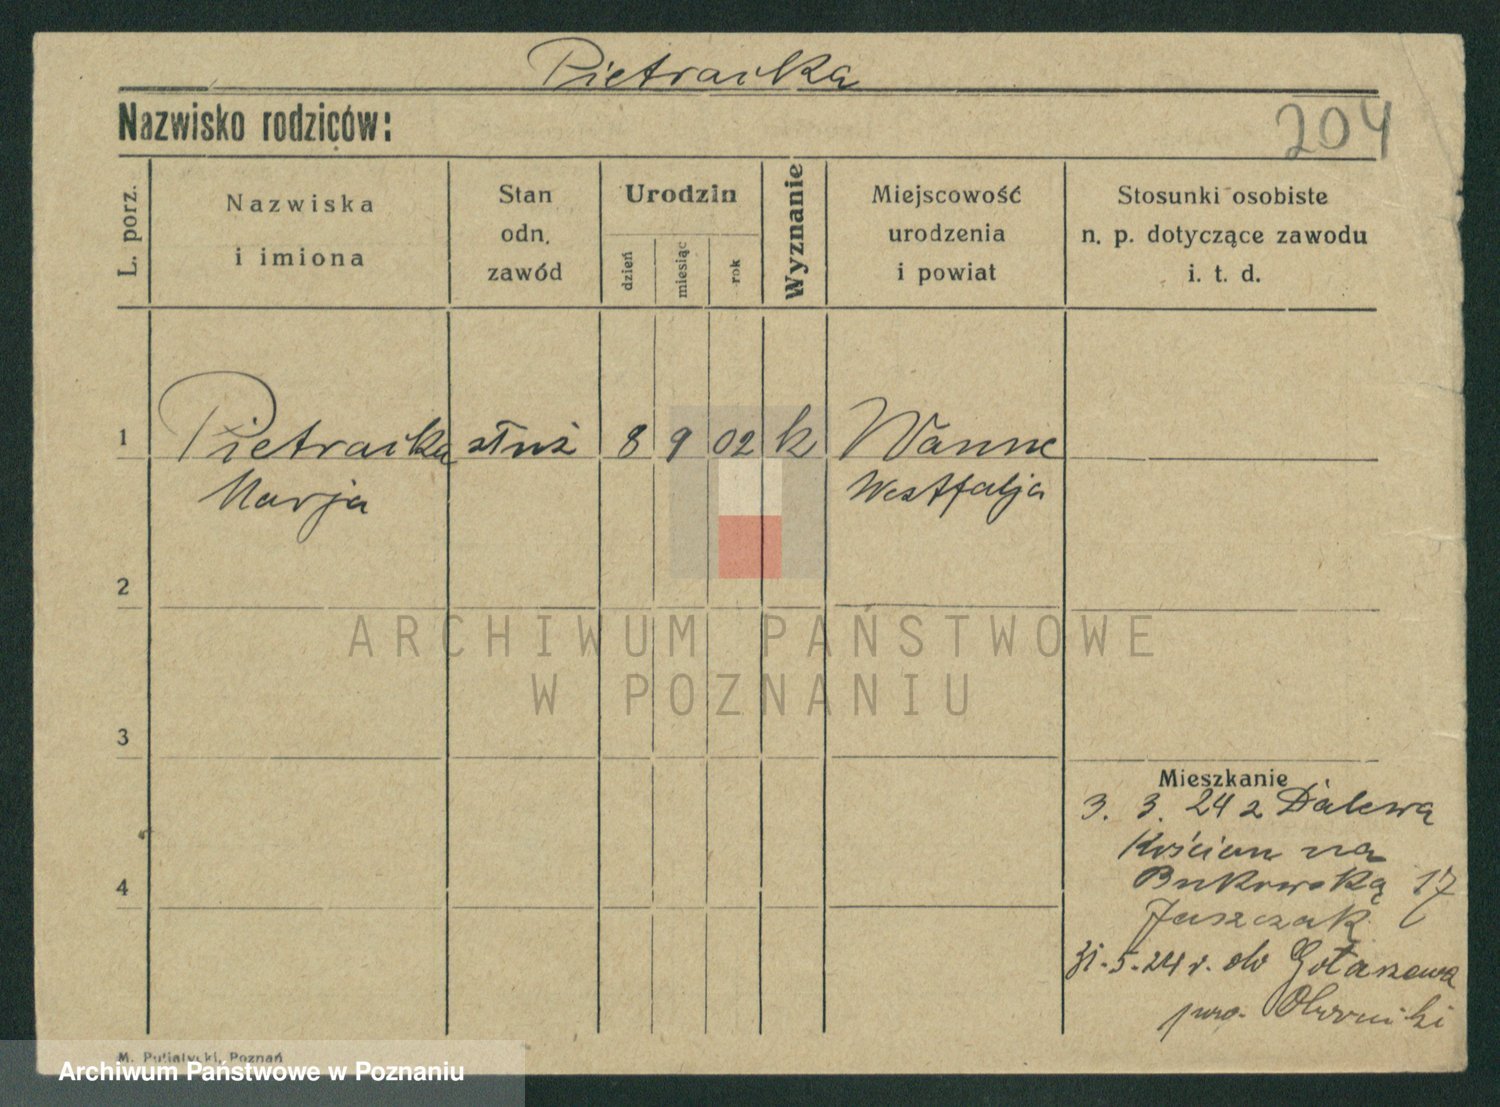 Pietraika
Nazwisko rodziców:
204
L. porz.
Nazwiska
i imiona
Stan
odn.
zawód
Urodzin
dzień
miesiąc
rok
Wyznanie
Miejscowość
urodzenia
i powiat
Stosunki osobiste
n. p. dotyczące zawodu
i. t. d.
1
Pietraika służ 8 9 02 k Wanne
Marja Westfalja
2
ARCHIWUM PAŃSTWOWE
W POZNANIU
3
Mieszkanie
3. 3. 24 z Dalewa
Kościan na
Bukowską 17
Jaszczak
31.5.24 r. do Gołaszewa
pow. Oborniki
4
M. Putiatycki, Poznań
Archiwum Państwowe w Poznaniu